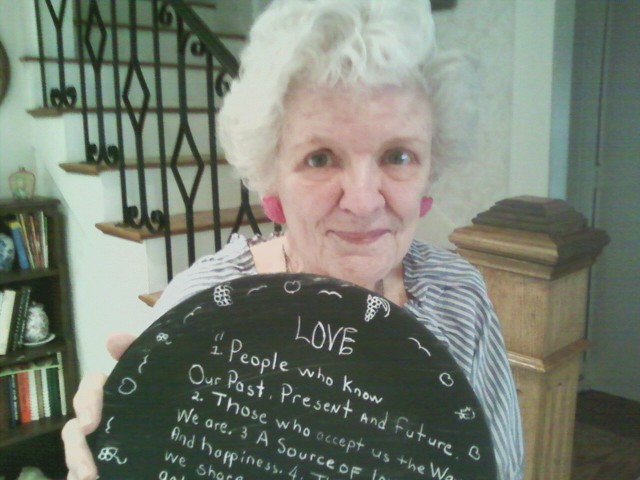 LOVE
"1. People who know
Our Past, Present and future.
2. Those who accept us the Wa
We are. 3 A Source OF
And happiness. 4. Th
we share